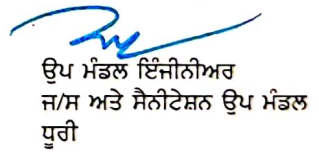 ਉਪ ਮੰਡਲ ਇੰਜੀਨੀਅਰ
ਜ/ਸ ਅਤੇ ਸੈਨੀਟੇਸ਼ਨ ਉਪ ਮੰਡਲ
ਧੂਰੀ